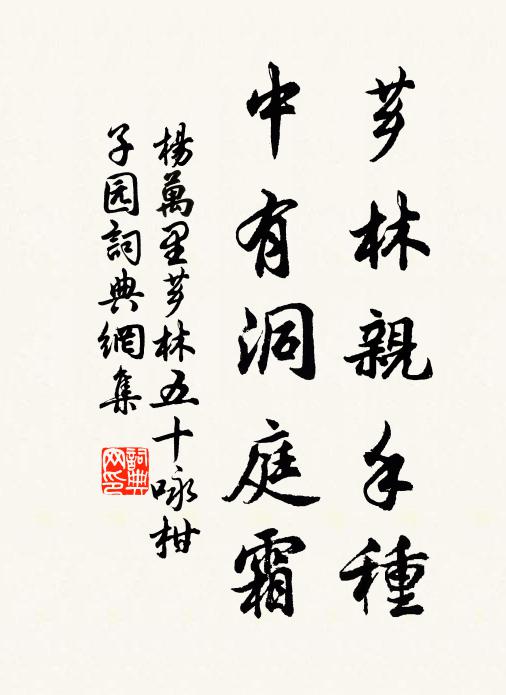 芗林親手種
中有洞庭霜
楊萬里芗林五十咏柑
子园詞典網集
詞典网印